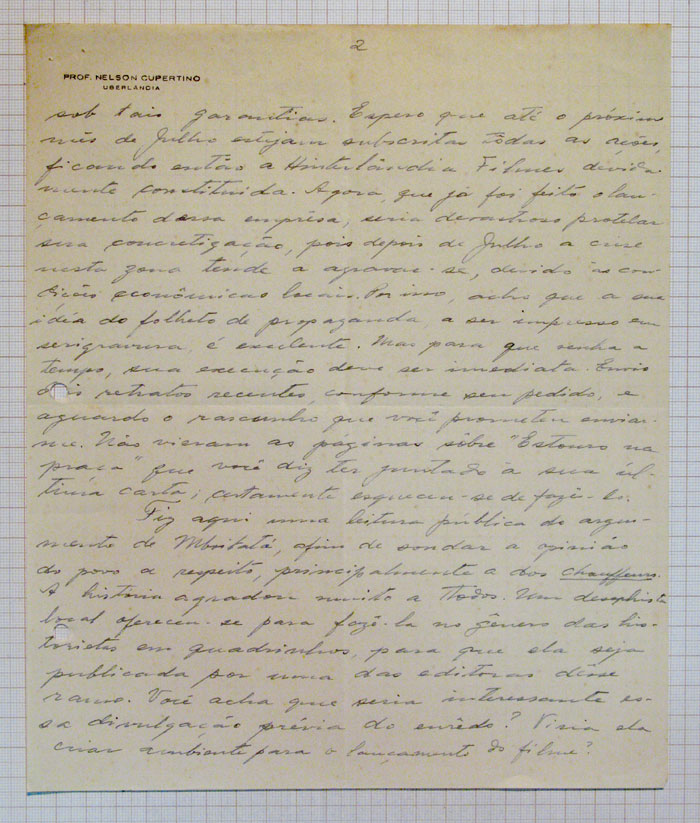 2
PROF. NELSON CUPERTINO
UBERLANDIA
sob tais garantias. Espero que até o próximo
mês de Julho estejam subscritas tôdas as ações,
ficando então a Hinterlândia Filmes devida-
mente constituida. Agora, que já foi feito o lan-
çamento dessa emprêsa, seria desastroso protelar
sua concretização, pois depois de Julho a crise
nesta zona tende a agravar-se, devido às con-
dições econômicas locais. Por isso, acho que a sua
idéia do folheto de propaganda, a ser impresso em
serigravura, é excelente. Mas para que venha a
tempo, sua execução deve ser imediata. Envio
dois retratos recentes, conforme seu pedido, e
aguardo o rascunho que você prometeu enviar-
me. Não vieram as páginas sôbre "Estouro na
praça" que você diz ter juntado à sua úl-
tima carta; certamente esqueceu-se de fazê-lo.
Fiz aqui uma leitura pública do argu-
mento de Mboitatá, afim de sondar a opinião
do povo a respeito, principalmente a dos chauffeurs.
A história agradou muito a todos. Um desenhista
local ofereceu-se para fazê-la no gênero das his-
torietas em quadrinhos, para que ela seja
publicada por uma das editoras dêsse
ramo. Você acha que seria interessante es-
sa divulgação prévia do enrêdo? Viria ela
criar ambiente para o lançamento do filme?